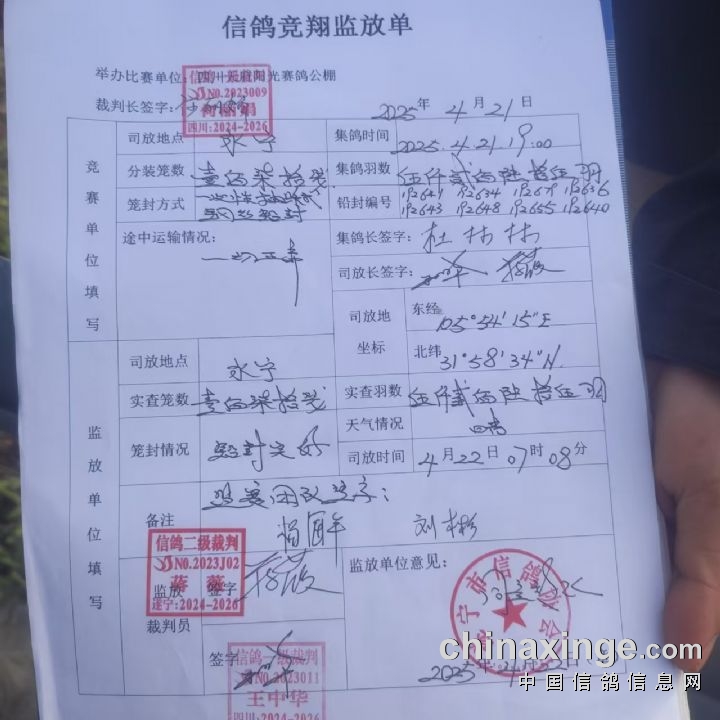 信鸽竞翔监放单
举办比赛单位: 四川 阳光赛鸽公棚
信鸽一级裁判
NO.2023009
四川:2024-2026
裁判长签字:
2025年 4月21日
竞赛单位填写
司放地点 永宁 集鸽时间 2025.4.21.19:00
分装笼数 壹佰柒拾贰 集鸽羽数 伍仟贰佰陆拾伍羽
笼封方式 一次性 钢丝铅封 铅封编号
途中运输情况: 一切正常 集鸽长签字: 杜林林
司放长签字:
司放地坐标 东经 105°54′15″E
北纬 31°58′34″N
监放单位填写
司放地点 永宁
实查笼数 壹佰柒拾贰 实查羽数 伍仟贰佰陆拾伍羽
天气情况 晴
笼封情况 铅封完好 司放时间 4月22日07时08分
备注 监赛团队签字:
刘彬
监放裁判员 签字 监放单位意见:
信鸽二级裁判
NO.2023J02
遂宁:2024-2026
签字
信鸽一级裁判
NO.2023011
王中华
四川:2024-2026
chinaxinge.com
中国信鸽信息网